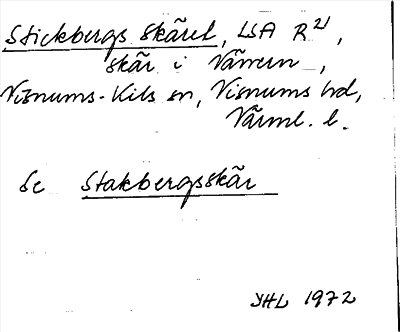 Stickbergs skäret, LSA R 21,
skär i Vänern,
Visnums-Kils sn, Visnums hd,
Värml. l.
Se Stakbergsskär
YHL 1972